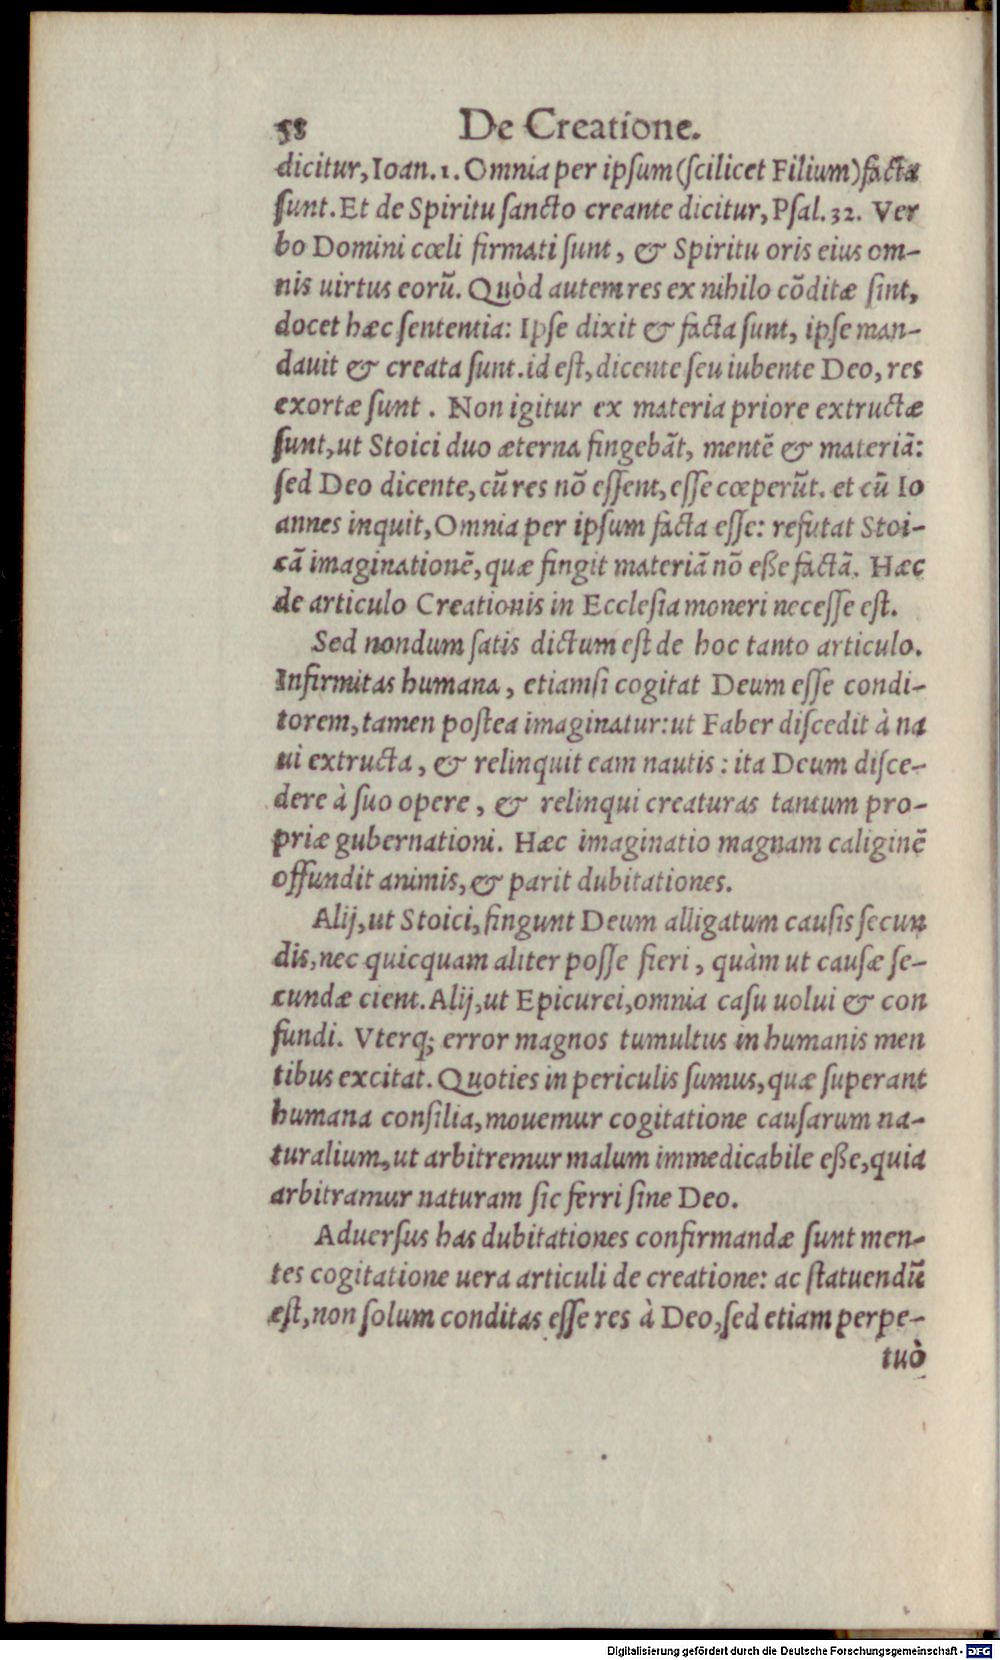 58 De Creatione.
dicitur, Ioan. 1. Omnia per ipſum (ſcilicet Filium) facta
ſunt. Et de Spiritu ſancto creante dicitur, Pſal. 32. Ver
bo Domini cœli firmati ſunt, & Spiritu oris eius om-
nis uirtus eorũ. Quòd autem res ex nihilo cõditæ ſint,
docet hæc ſententia: Ipſe dixit & facta ſunt, ipſe man-
dauit & creata ſunt. id eſt, dicente ſeu iubente Deo, res
exortæ ſunt. Non igitur ex materia priore extructæ
ſunt, ut Stoici duo æterna fingebãt, mentẽ & materiã:
ſed Deo dicente, cũ res nõ eſſent, eſſe cœperũt. et cũ Io
annes inquit, Omnia per ipſum facta eſſe: refutat Stoi-
cã imaginationẽ, quæ fingit materiã nõ eße factã. Hæc
de articulo Creationis in Eccleſia moneri neceſſe eſt.
Sed nondum ſatis dictum eſt de hoc tanto articulo.
Infirmitas humana, etiamſi cogitat Deum eſſe condi-
torem, tamen poſtea imaginatur: ut Faber diſcedit à na
ui extructa, & relinquit eam nautis: ita Deum diſce-
dere à ſuo opere, & relinqui creaturas tantum pro-
priæ gubernationi. Hæc imaginatio magnam caliginẽ
offundit animis, & parit dubitationes.
Alij, ut Stoici, fingunt Deum alligatum cauſis ſecun
dis, nec quicquam aliter poſſe fieri, quàm ut cauſæ ſe-
cundæ cient. Alij, ut Epicurei, omnia caſu uolui & con
fundi. Vterq; error magnos tumultus in humanis men
tibus excitat. Quoties in periculis ſumus, quæ ſuperant
humana conſilia, mouemur cogitatione cauſarum na-
turalium, ut arbitremur malum immedicabile eße, quia
arbitramur naturam ſic ferri ſine Deo.
Aduerſus has dubitationes confirmandæ ſunt men-
tes cogitatione uera articuli de creatione: ac ſtatuendũ
eſt, non ſolum conditas eſſe res à Deo, ſed etiam perpe-
tuò
Digitalisierung gefördert durch die Deutsche Forschungsgemeinschaft - DFG